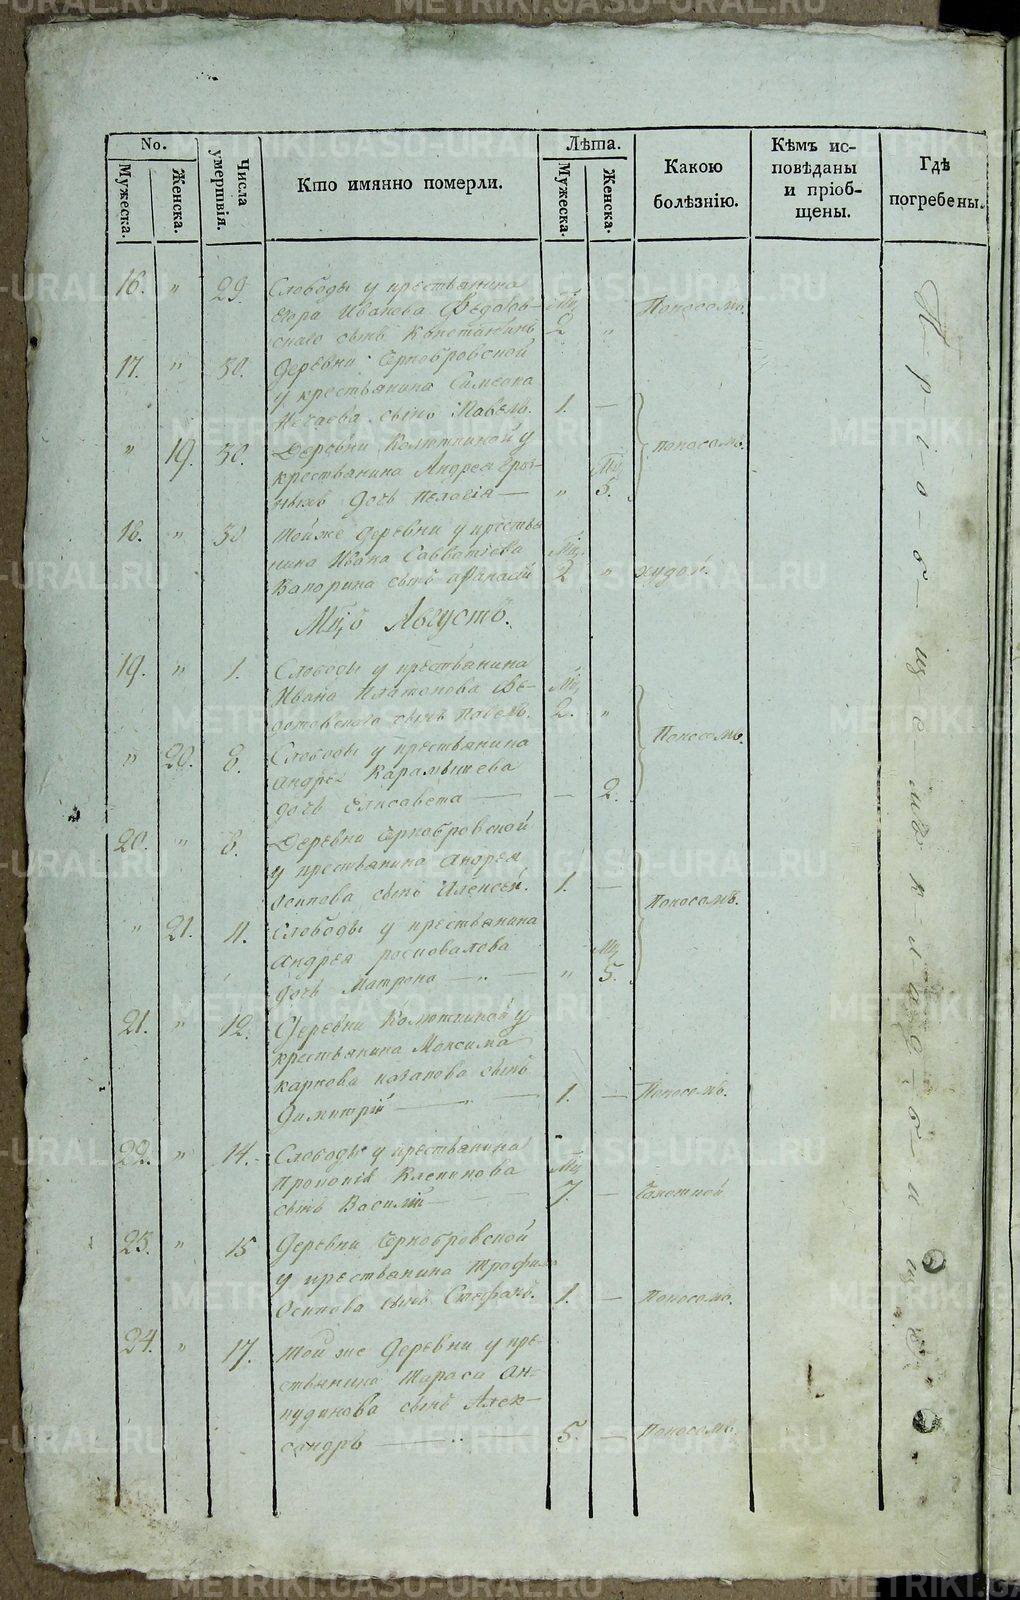 No.
Мужеска.
Женска.
Числа умертвія.
Кто имянно померли.
Лѣта.
Мужеска.
Женска.
Какою болѣзнію.
Кѣмъ исповѣданы и пріобщены.
Гдѣ погребены.
16. " 29. Слободы у крестьянина
Егора Иванова Ѳедотов- Мц.
скаго сынъ Константинъ 2 " Поносомъ.
17. " 30. Деревни Чернобровской
у крестьянина Симеона
Нечаева сынъ Павелъ. 1. —
" 19. 30. Деревни Колюткиной у Поносомъ.
крестьянина Андрея Мц.
дочь Пелагія — " 5.
18. " 30 Той же деревни у крестья
нина Ивана Савватѣева Мц.
Вапорина сынъ Афанасій 2 " худой.
Мцъ Августъ.
19. " 1. Слободы у крестьянина
Ивана Платонова Ѳе- Мц.
дотовскаго сынъ Павелъ. 2. "
" 20. 8. Слободы у крестьянина Поносомъ.
Андрея Карамышева
дочь Елисавета — — 2.
20. " 8. Деревни Чернобровской
у крестьянина Андрея
Осипова сынъ Алексей. 1. —
" 21. 11. Слободы у крестьянина Поносомъ.
Андрея Мц.
дочь Матрона — " 5.
21. " 12. Деревни Колюткиной у
крестьянина Максима
Карпова Казакова сынъ
Димитрій — 1. — Поносомъ.
22. " 14. Слободы у крестьянина
Прокопія Клепикова Мц.
сынъ Василій — 7. —
23. " 15 Деревни Чернобровской
у крестьянина Трофима
Осипова сынъ Стефанъ. 1. — Поносомъ.
24. " 17. Той же Деревни у кре-
стьянина Тараса Ан-
кудинова сынъ Алек-
сандръ — 5. — Поносомъ.
на кладбищѣ.
METRIKI.GASO-URAL.RU